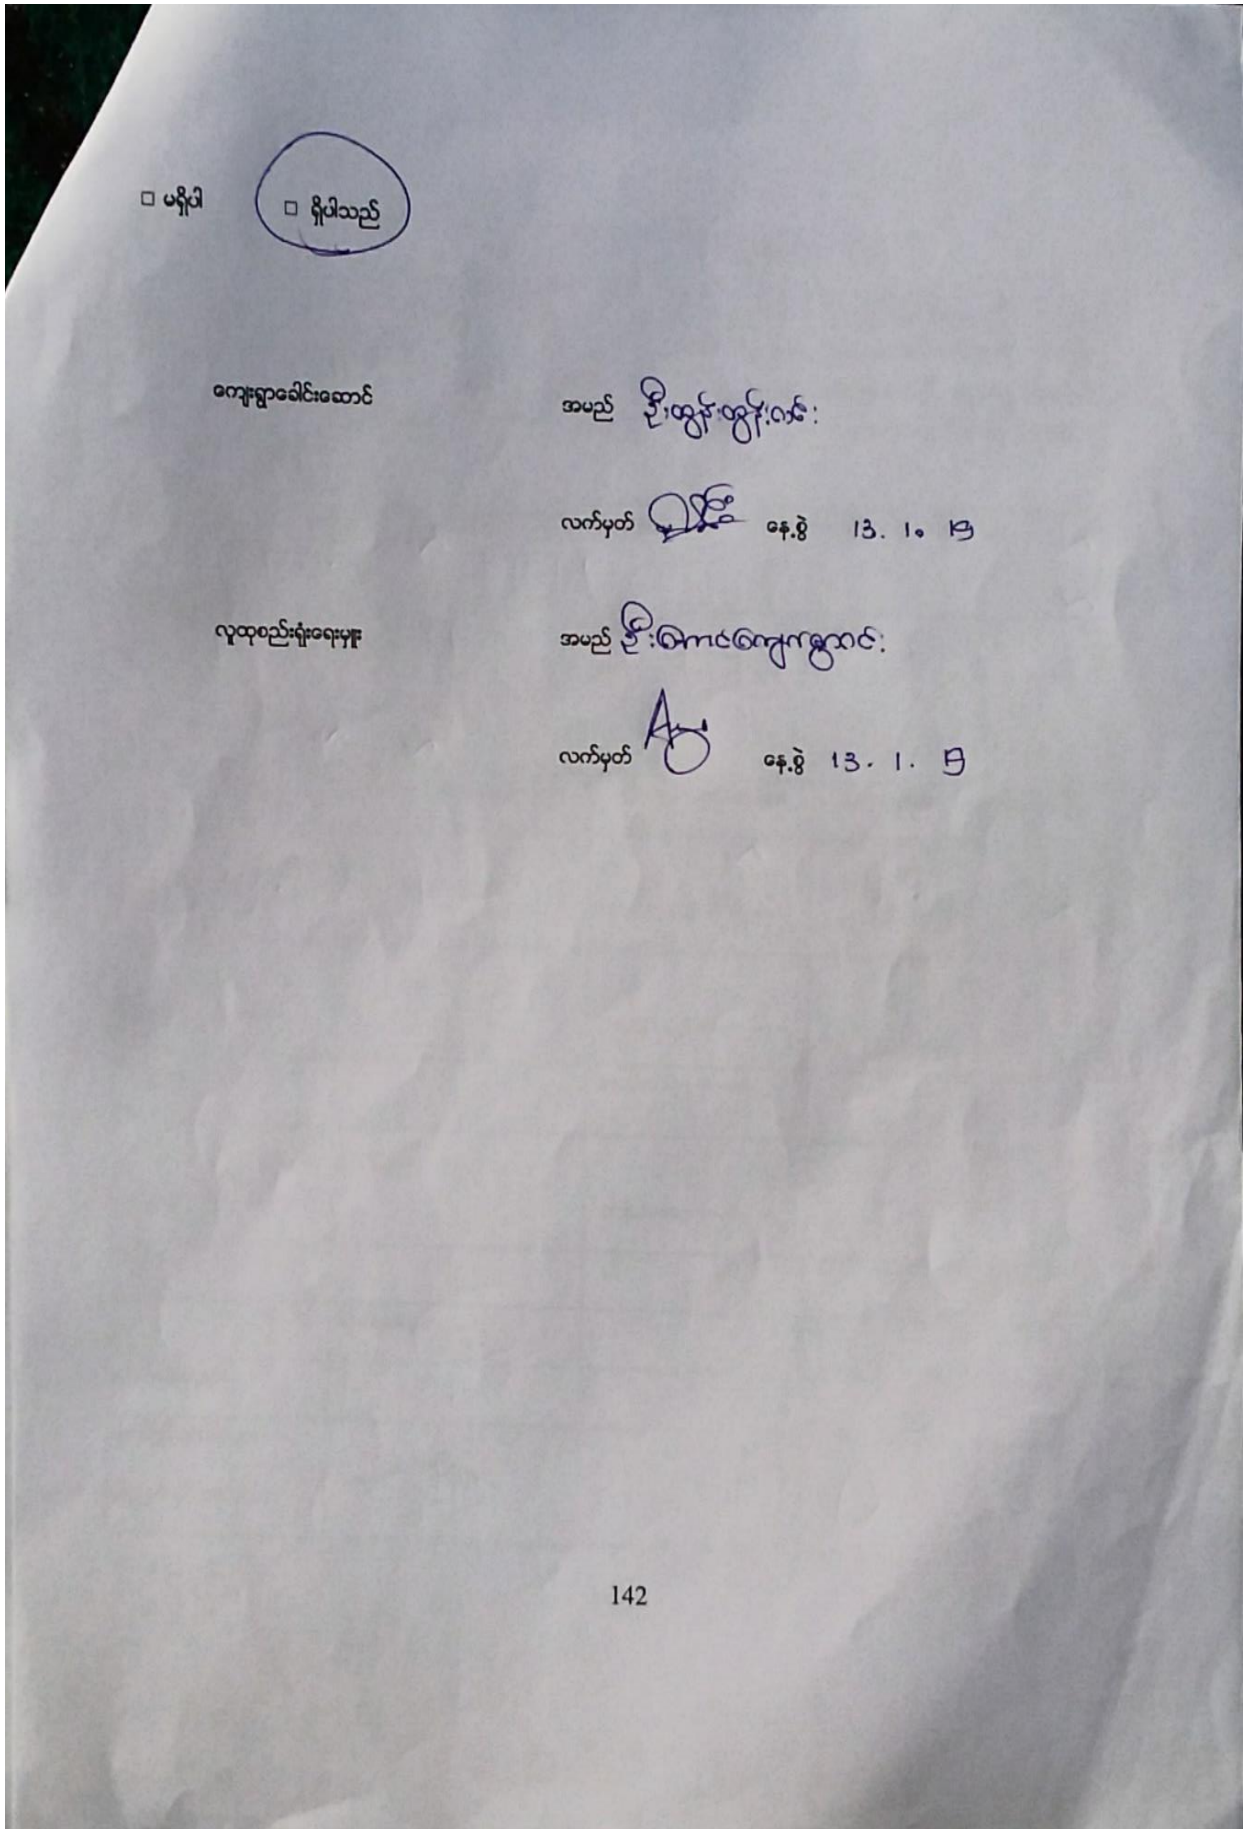 □ မရှိပါ □ ရှိပါသည်
ကျေးရွာခေါင်းဆောင် အမည် ဦးထွန်းထွန်းလင်း
လက်မှတ် နေ့စွဲ 13. 1. 19
လူထုစည်းရုံးရေးမှူး အမည် ဦးအောင်ကျော
လက်မှတ် နေ့စွဲ 13. 1. 19
142